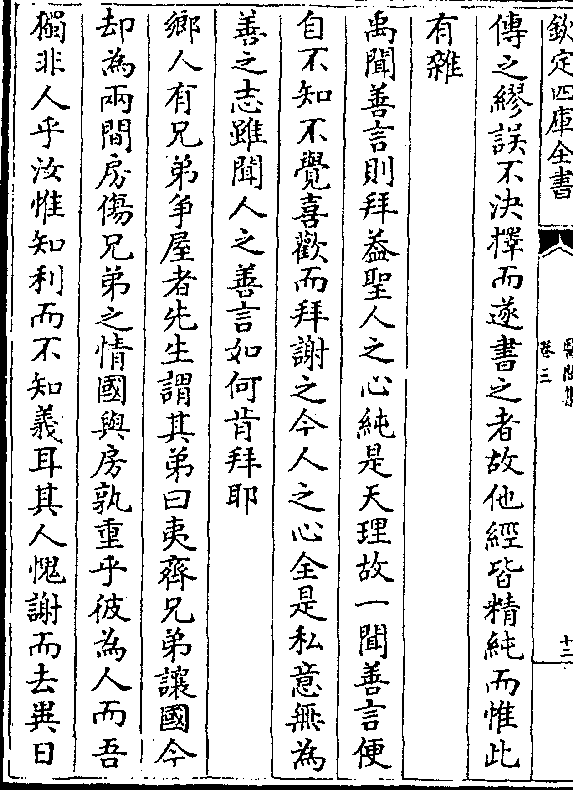 欽定四庫全書
醫閭集
卷三
十二
傳之繆誤不決擇而遂書之者故他經皆精純而惟此
有雜
禹聞善言則拜葢聖人之心純是天理故一聞善言便
自不知不覺喜歡而拜謝之今人之心全是私意無為
善之志雖聞人之善言如何肯拜耶
鄉人有兄弟爭屋者先生謂其弟曰夷齊兄弟讓國今
却為兩間房傷兄弟之情國與房孰重乎彼為人而吾
獨非人乎汝惟知利而不知義耳其人愧謝而去異日